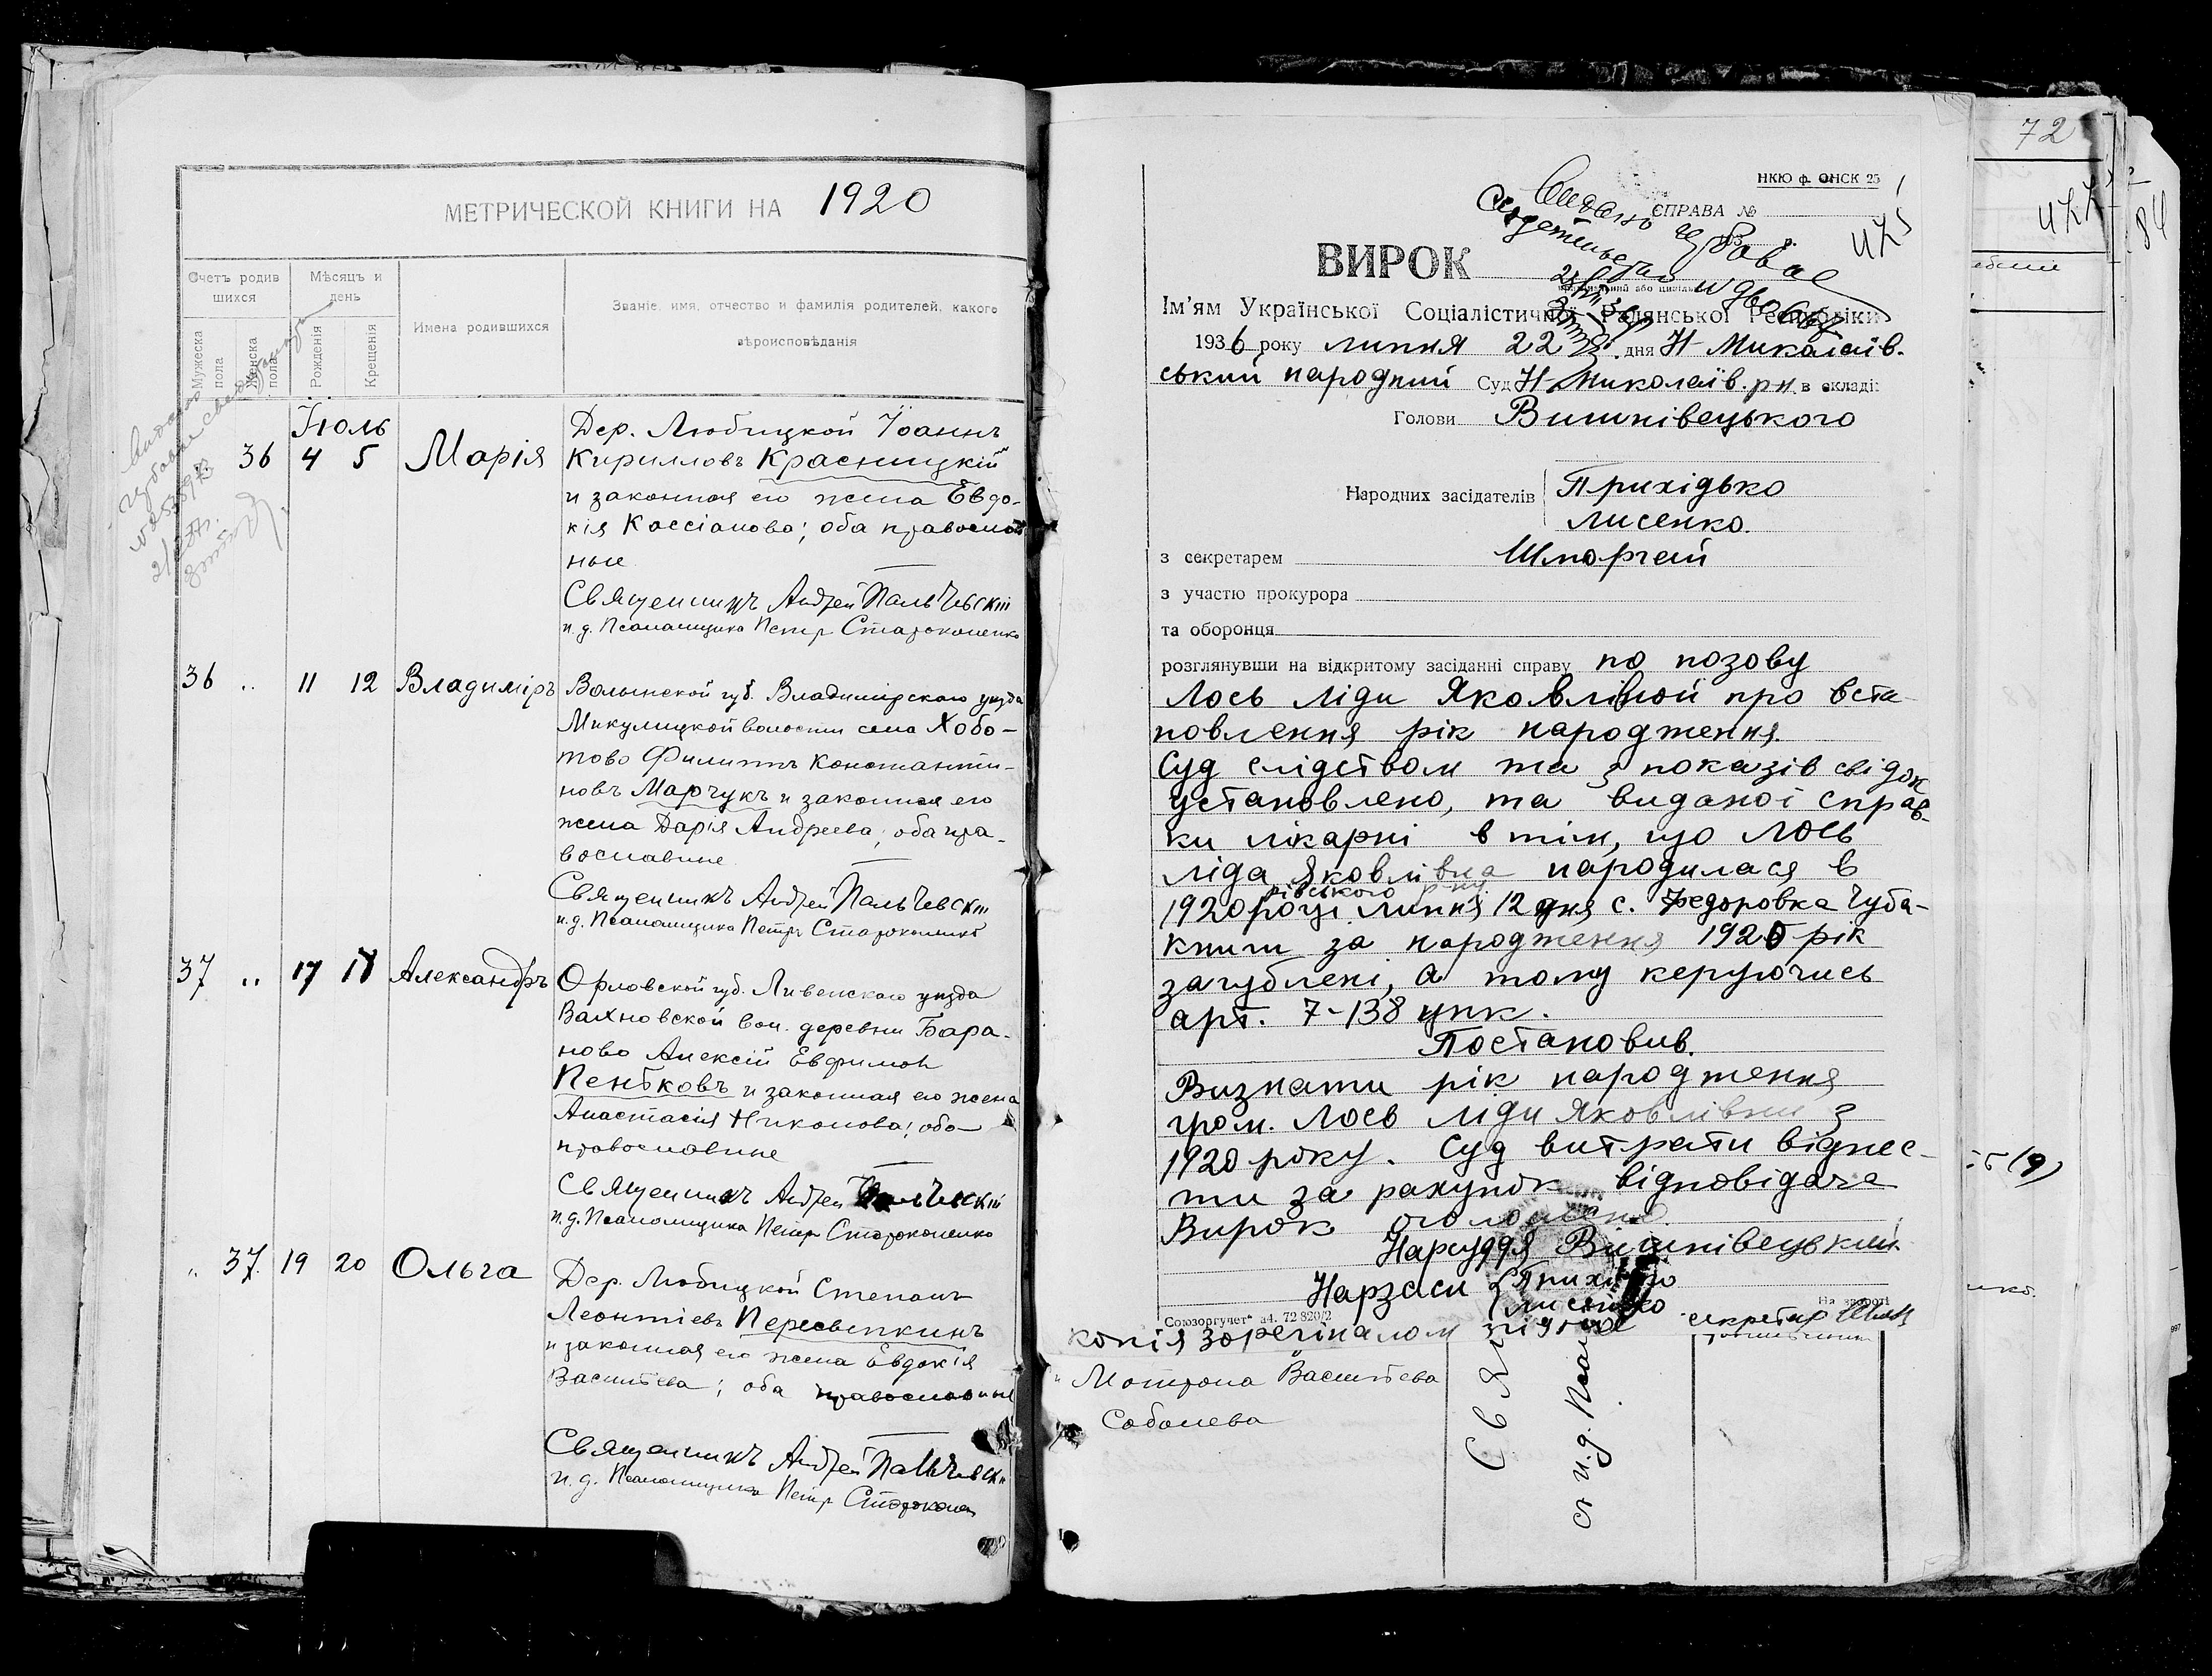 МЕТРИЧЕСКОЙ КНИГИ НА 1920
Счетъ родив
шихся
Мѣсяцъ и
день
Имена родившихся
Званіе, имя, отчество и фамилія родителей, какого
вѣроисповѣданія
Мужеска
пола
Женска
пола
Рожденія
Крещенія
Іюль
.. 36 4 5 Марія
Дер. Любицкой Іоаннъ
Кирилловъ Красницкій
и законная его жена Евдо-
кія Кассіанова; оба православ
ные
Священникъ Андрей Пальчевскій
и.д. Псаломщика Петр Староконенко
36 .. 11 12 Владиміръ
Волынской губ. Владимірскаго уѣзда
Микулицкой волости села Хобо-
тово Филиппъ Константи-
новъ Марчукъ и законная его
жена Дарія Андреева; оба пра-
вославные
Священникъ Андрей Пальчевскій
и.д. Псаломщика Петръ Староконенко
37 .. 17 18 Александръ
Орловской губ. Ливенскаго уѣзда
Вахновской вол. деревни Бара-
ново Алексій Евфимов
Пеньковъ и законная его жена
Анастасія Никонова; оба
православные
Священникъ Андрей Пальчевскій
и.д. Псаломщика Петр Староконенко
.. 37. 19 20 Ольга
Дер. Любицкой Степанъ
Леонтіевъ Пересыпкинъ
и законная его жена Евдокія
Васильева; оба православные
Священникъ Андрей Пальчевскі
и.д. Псаломщика Петр Староконен
НКЮ ф. ОНСК 25
СПРАВА №
475
ВИРОК
Ім'ям Української Соціалістичної Радянської Республіки
1936 року липня 22 дня Н-Миколаїв.
ський народний Суд Н-Миколаїв. р-н. в складі:
Голови Вишнівецького
Народних засідателів Прихідько
Лисенко.
з секретарем Шпоргей
з участю прокурора
та оборонця
розглянувши на відкритому засіданні справу по позову
Лось Ліди Яковлівной про вста-
новлення рік народження.
Суд слідством та з показів свідок
установлено, та виданої справ-
ки лікарні в тім, що Лось
Ліда Яковлівна народилася в
рівського р-ну.
1920 році липня 12 дня с. Федоровка Чуба-
книги за народження 1920 рік
загублені, а тому керуючись
арт. 7-138 цпк.
Постановив.
Визнати рік народження
гром. Лось Ліди Яковлівни з
1920 року. Суд витрати віднес-
ти за рахунок відповідача
Вирок оголошено.
Нарсуддя Вишнівецький.
Нарзаси Прихідько
Лисенко
секретар
На звороті
Союзоргучет
копія з орегіналом згідна
Матрона Васильева
Соболева
и.д.
72
84